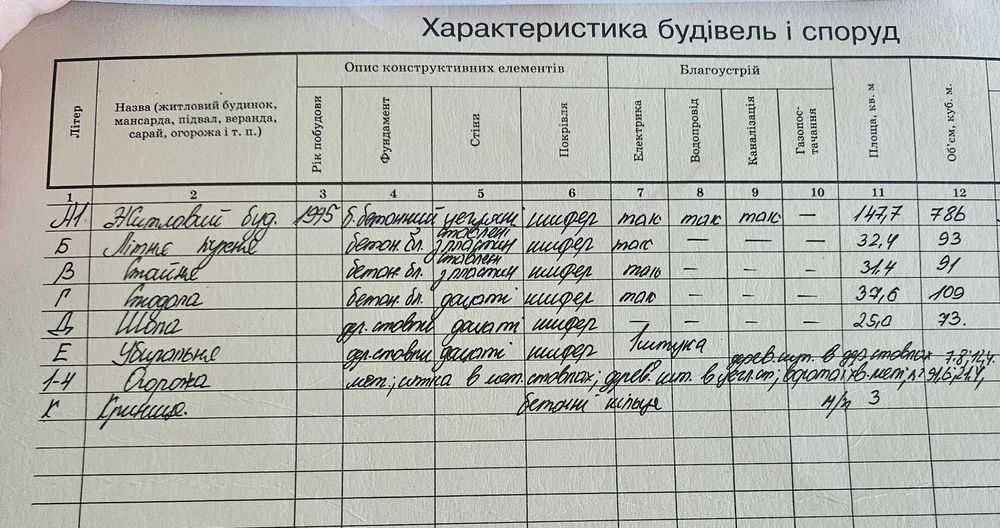 Характеристика будівель і споруд
Літер
Назва (житловий будинок, мансарда, підвал, веранда, сарай, огорожа і т. п.)
Опис конструктивних елементів
Благоустрій
Рік побудови
Фундамент
Стіни
Покрівля
Електрика
Водопровід
Каналізація
Газопос-
тачання
Площа, кв. м
Об'єм, куб. м.
1 2 3 4 5 6 7 8 9 10 11 12
А1 Житловий буд. 1995 б.бетонний цегляні шифер так так так — 147,7 786
Б Літнє кухня бетон. бл. ставлені з пластин шифер так — — — 32,4 93
В Стайня бетон. бл. ставлені з пластин шифер так — — — 31.4 91
Г Стодола бетон. бл. дощаті шифер так — — — 37,6 109
Д Шопа дер. стовпи дощаті шифер — — — — 25,0 73.
Е Убиральня дер. стовпи дощаті шифер 1 штука
дерев. шт. в дер. стовпах 7.8; 12,4.
1-4 Огорожа мет.; сітка в мет. стовпах; дерев. шт. в
К Криниця. бетонні кільця м/п 3